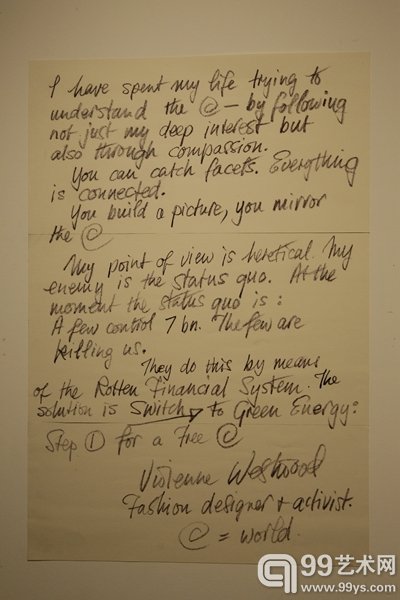 I have spent my life trying to
understand the @ – by following
not just my deep interest but
also through compassion.
You can catch facets. Everything
is connected.
You build a picture, you mirror
the @
My point of view is heretical. My
enemy is the status quo. At the
moment the status quo is:
A few control 7 bn. The few are
killing us.
They do this by means
of the Rotten Financial System. The
solution is Switch to Green Energy:
Step ① for a Free @
Vivienne Westwood
Fashion designer + activist.
@ = world.
99艺术网
www.99ys.com